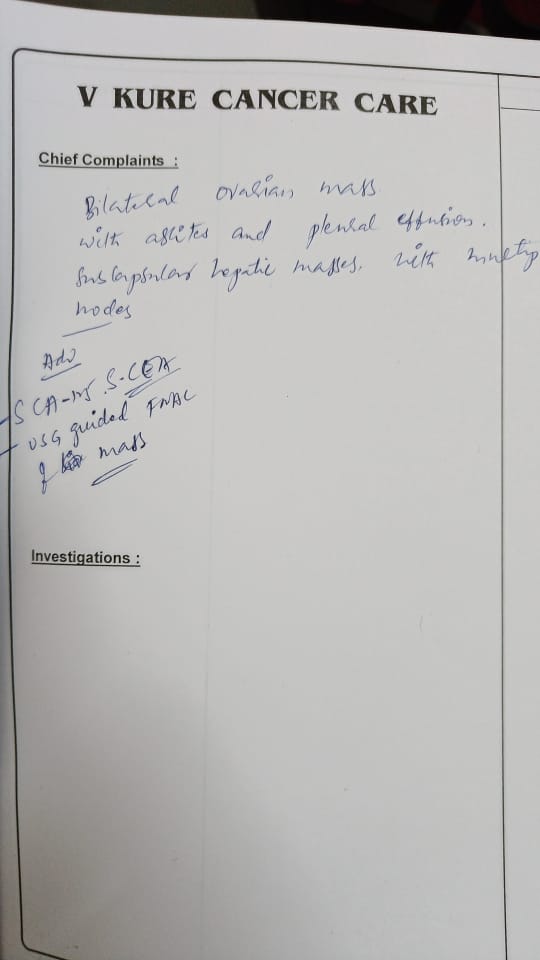 V KURE CANCER CARE
Chief Complaints :
Bilateral ovarian mass
with ascites and pleural effusion.
Subcapsular hepatic masses. with multip
nodes
Adv
- S CA-125. S-CEA
- USG guided FNAC
of mass
Investigations :